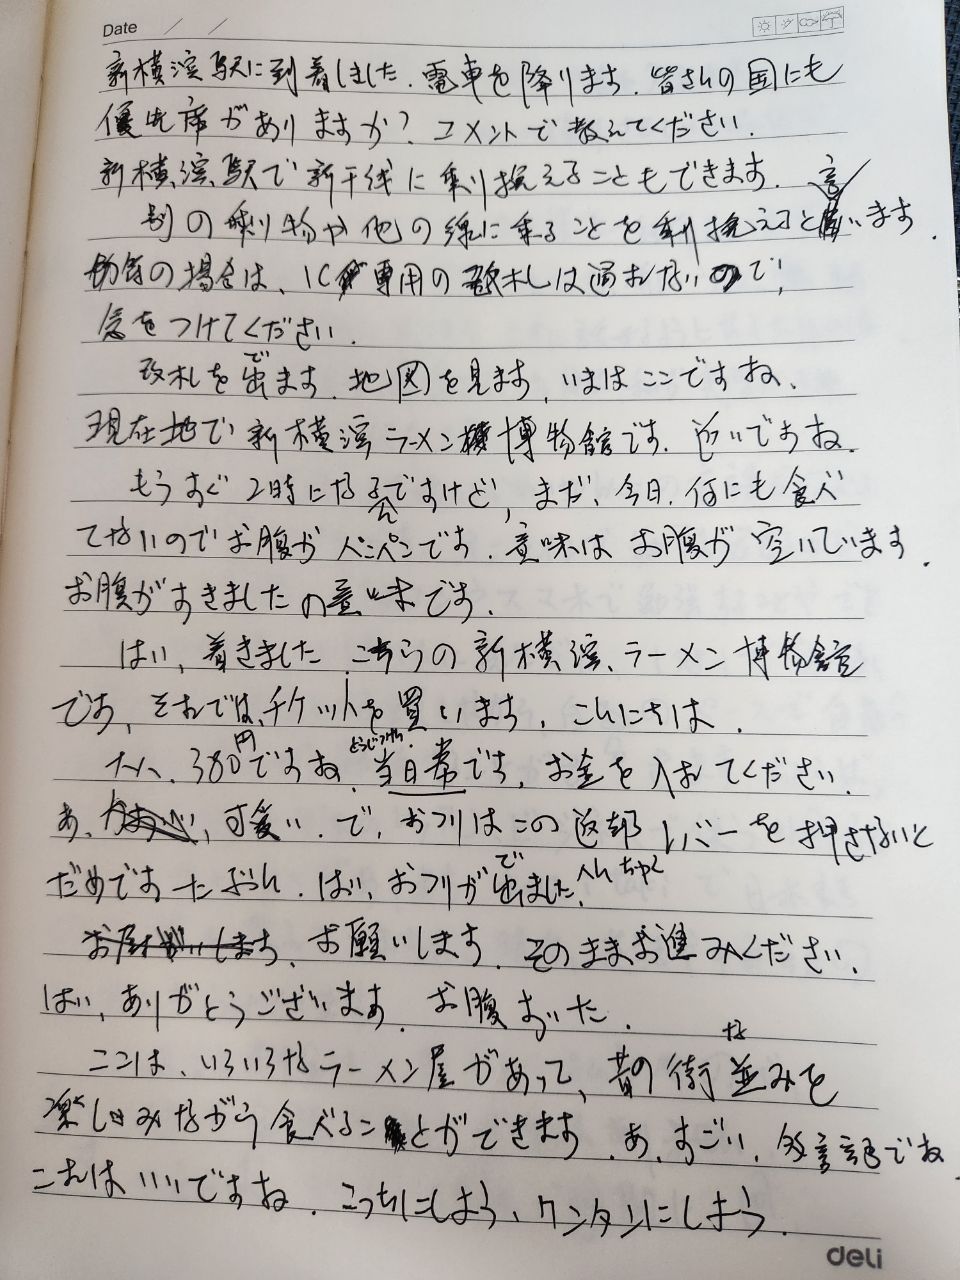 Date / /
新横浜駅に到着しました. 電車を降ります. 皆さんの国にも
優先席がありますか? コメントで教えてください.
新横浜駅で新干线に乗り換えることもできます. 言
別の乗り物や他の線に乗ることを乗り換えると います.
の場合は、IC 専用の改札しは通れないので,
気をつけてください.
で
改札を出ます. 地図を見ます, いまはここですね.
現在地で新横浜ラーメン 博物館です. 近いですね.
もうすぐ2時になるですけど, まだ, 今日, 何にも食べ
ん
てないのでお腹がペンペンです. 意味は お腹が空いています.
お腹がすきましたの意味です.
はい, 着きました. こちらの新横浜、ラーメン博物館
です, それでは, チケットを買います, こんにちは.
円
大人, 380ですね. 当日券です, お金を入れてください.
あ, 可爱い. で, おつりはこの返却レバーを押さないと
で へんきゃく
だめですたぶん. はい, おつりが出ました.
お願いします. そのままお進みください.
はい, ありがとうございます. お腹すいた.
な
ここは、いろいろなラーメン屋があって, 昔の街並みを
楽しみながら食べることができます. あ, すごい, でね
これはいいですね. こっちにしよう, ワンタンにしよう.
deli